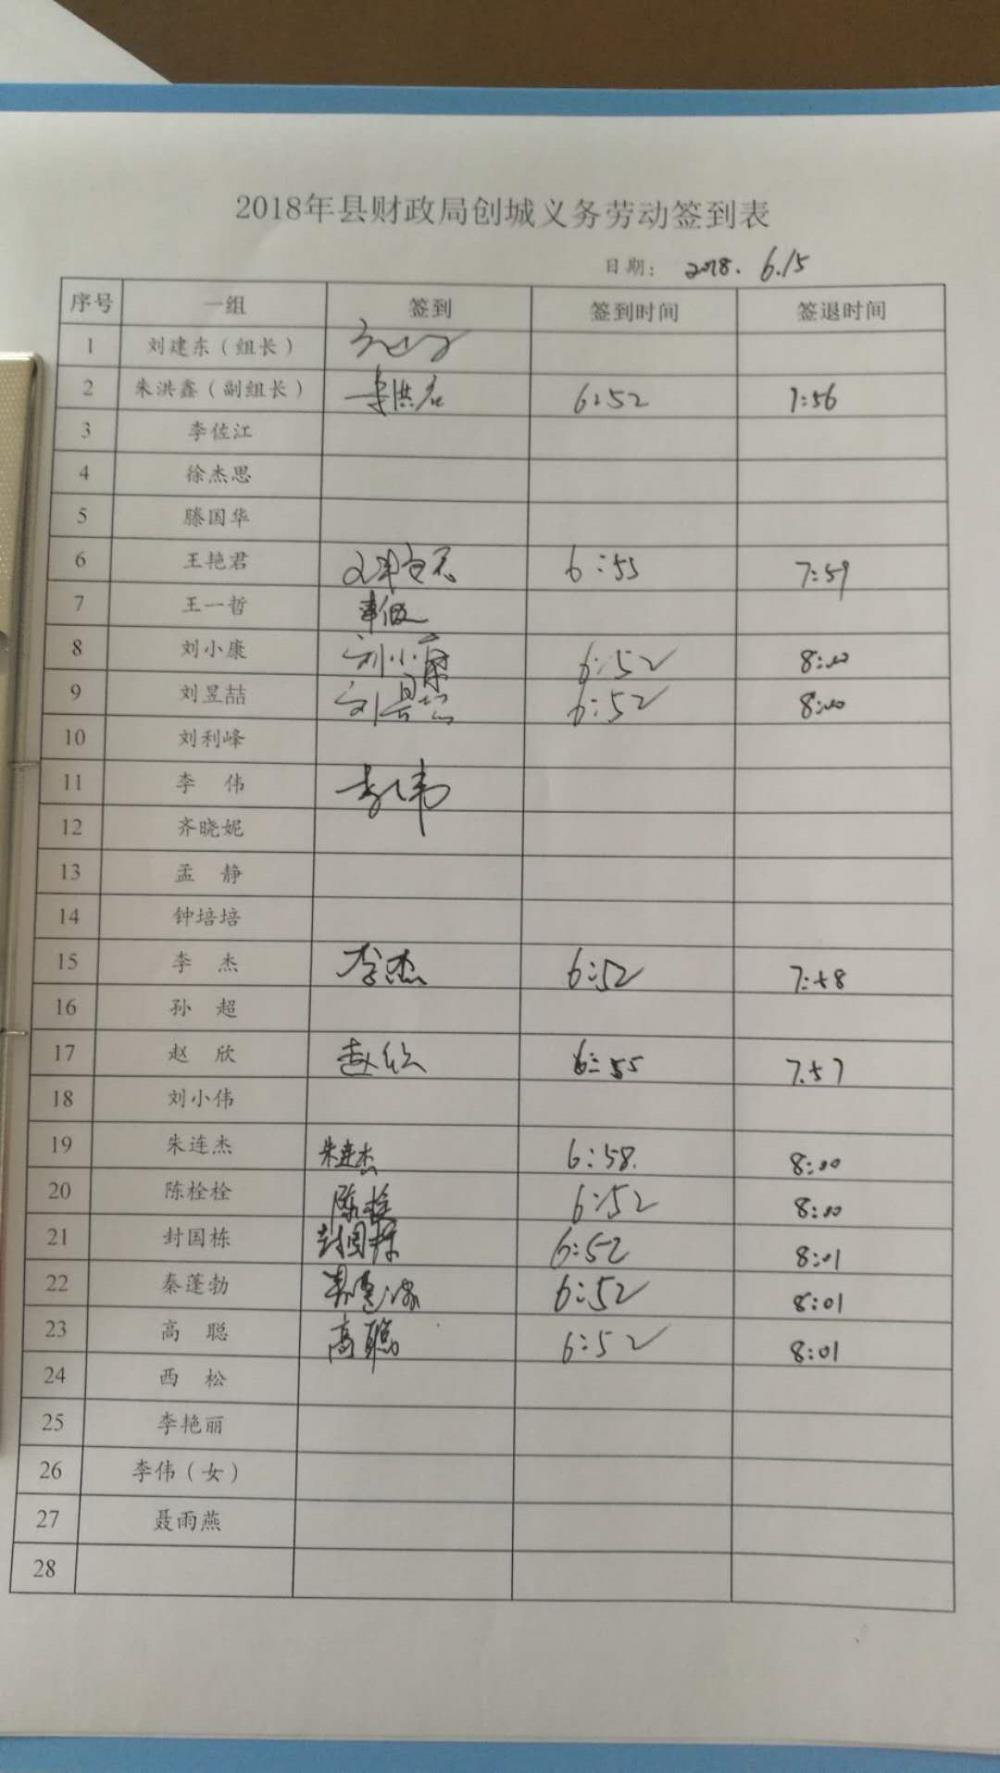 2018年县财政局创城义务劳动签到表
日期： 2018. 6.15
序号 一组 签到 签到时间 签退时间
1 刘建东（组长）
2 朱洪鑫（副组长） 6:52 7:56
3 李佐江
4 徐杰思
5 滕国华
6 王艳君 王艳君 6:55 7:59
7 王一哲 事假
8 刘小康 刘小康 6:52 8:00
9 刘昱喆 刘昱喆 6:52 8:00
10 刘利峰
11 李 伟 李伟
12 齐晓妮
13 孟 静
14 钟培培
15 李 杰 李杰 6:52 7:58
16 孙 超
17 赵 欣 赵欣 6:55 7.57
18 刘小伟
19 朱连杰 朱连杰 6:58. 8:00
20 陈栓栓 陈栓 6:52 8:00
21 封国栋 封国栋 6:52 8:01
22 秦蓬勃 秦蓬勃 6:52 8:01
23 高 聪 高聪 6:52 8:01
24 西 松
25 李艳丽
26 李伟（女）
27 聂雨燕
28